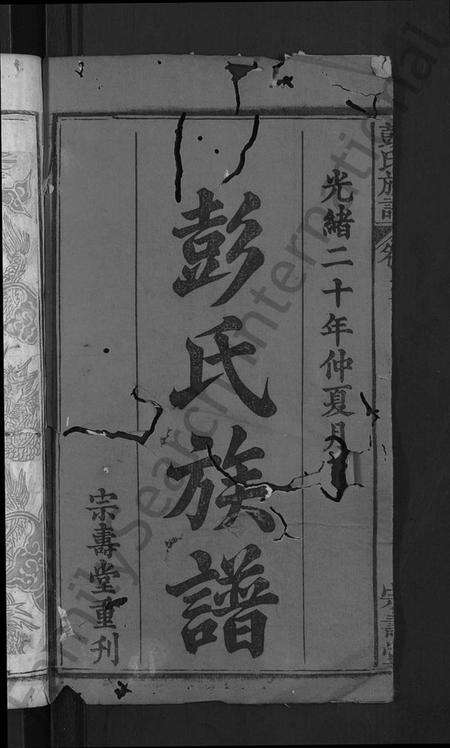 光緒二十年仲夏月
彭氏族譜
宗壽堂重刊
彭氏族譜
卷
宗壽堂
FamilySearch International